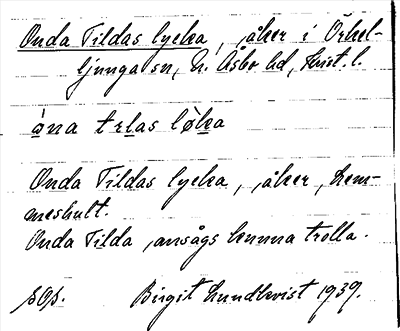 Onda Tildas lycka, åker i Örkel-
ljunga sn, N. Åsbo hd, Krist. l.
ȯna tɪlas lø̀ka
Onda Tildas lycka, åker, Lem-
meshult.
Onda Tilda, ansågs kunna trolla.
Birgit Lundkvist 1939.